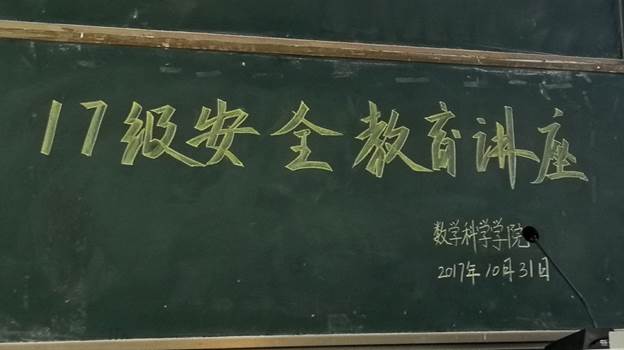 17级安全教育讲座
数学科学学院
2017年10月31日